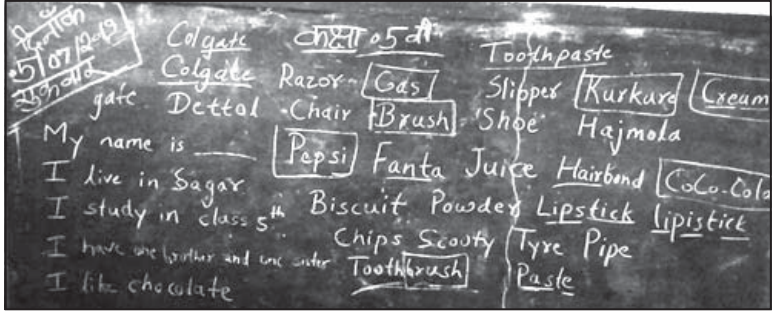 दिनाँक
5/07/2019
शुक्रवार
Colgate कक्षा 05 वी Toothpaste
Colgate Razor Gas Slipper Kurkure Cream
gate Dettol Chair Brush Shoe Hajmola
My name is ____ Pepsi Fanta Juice Hairbond CoCo-Cola
I live in Sagar
I study in class 5th Biscuit Powder Lipstick lipistick
Chips Scouty Tyre Pipe
I have one brother and one sister Toothbrush Paste
I like chocolate